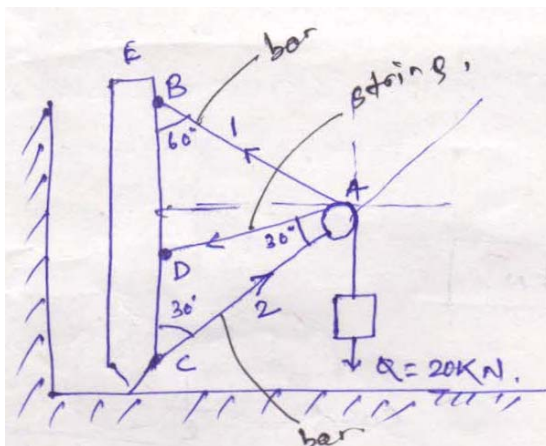 bar
E
string.
B
60°
1
A
30°
D
30°
2
C
Q = 20KN.
bar